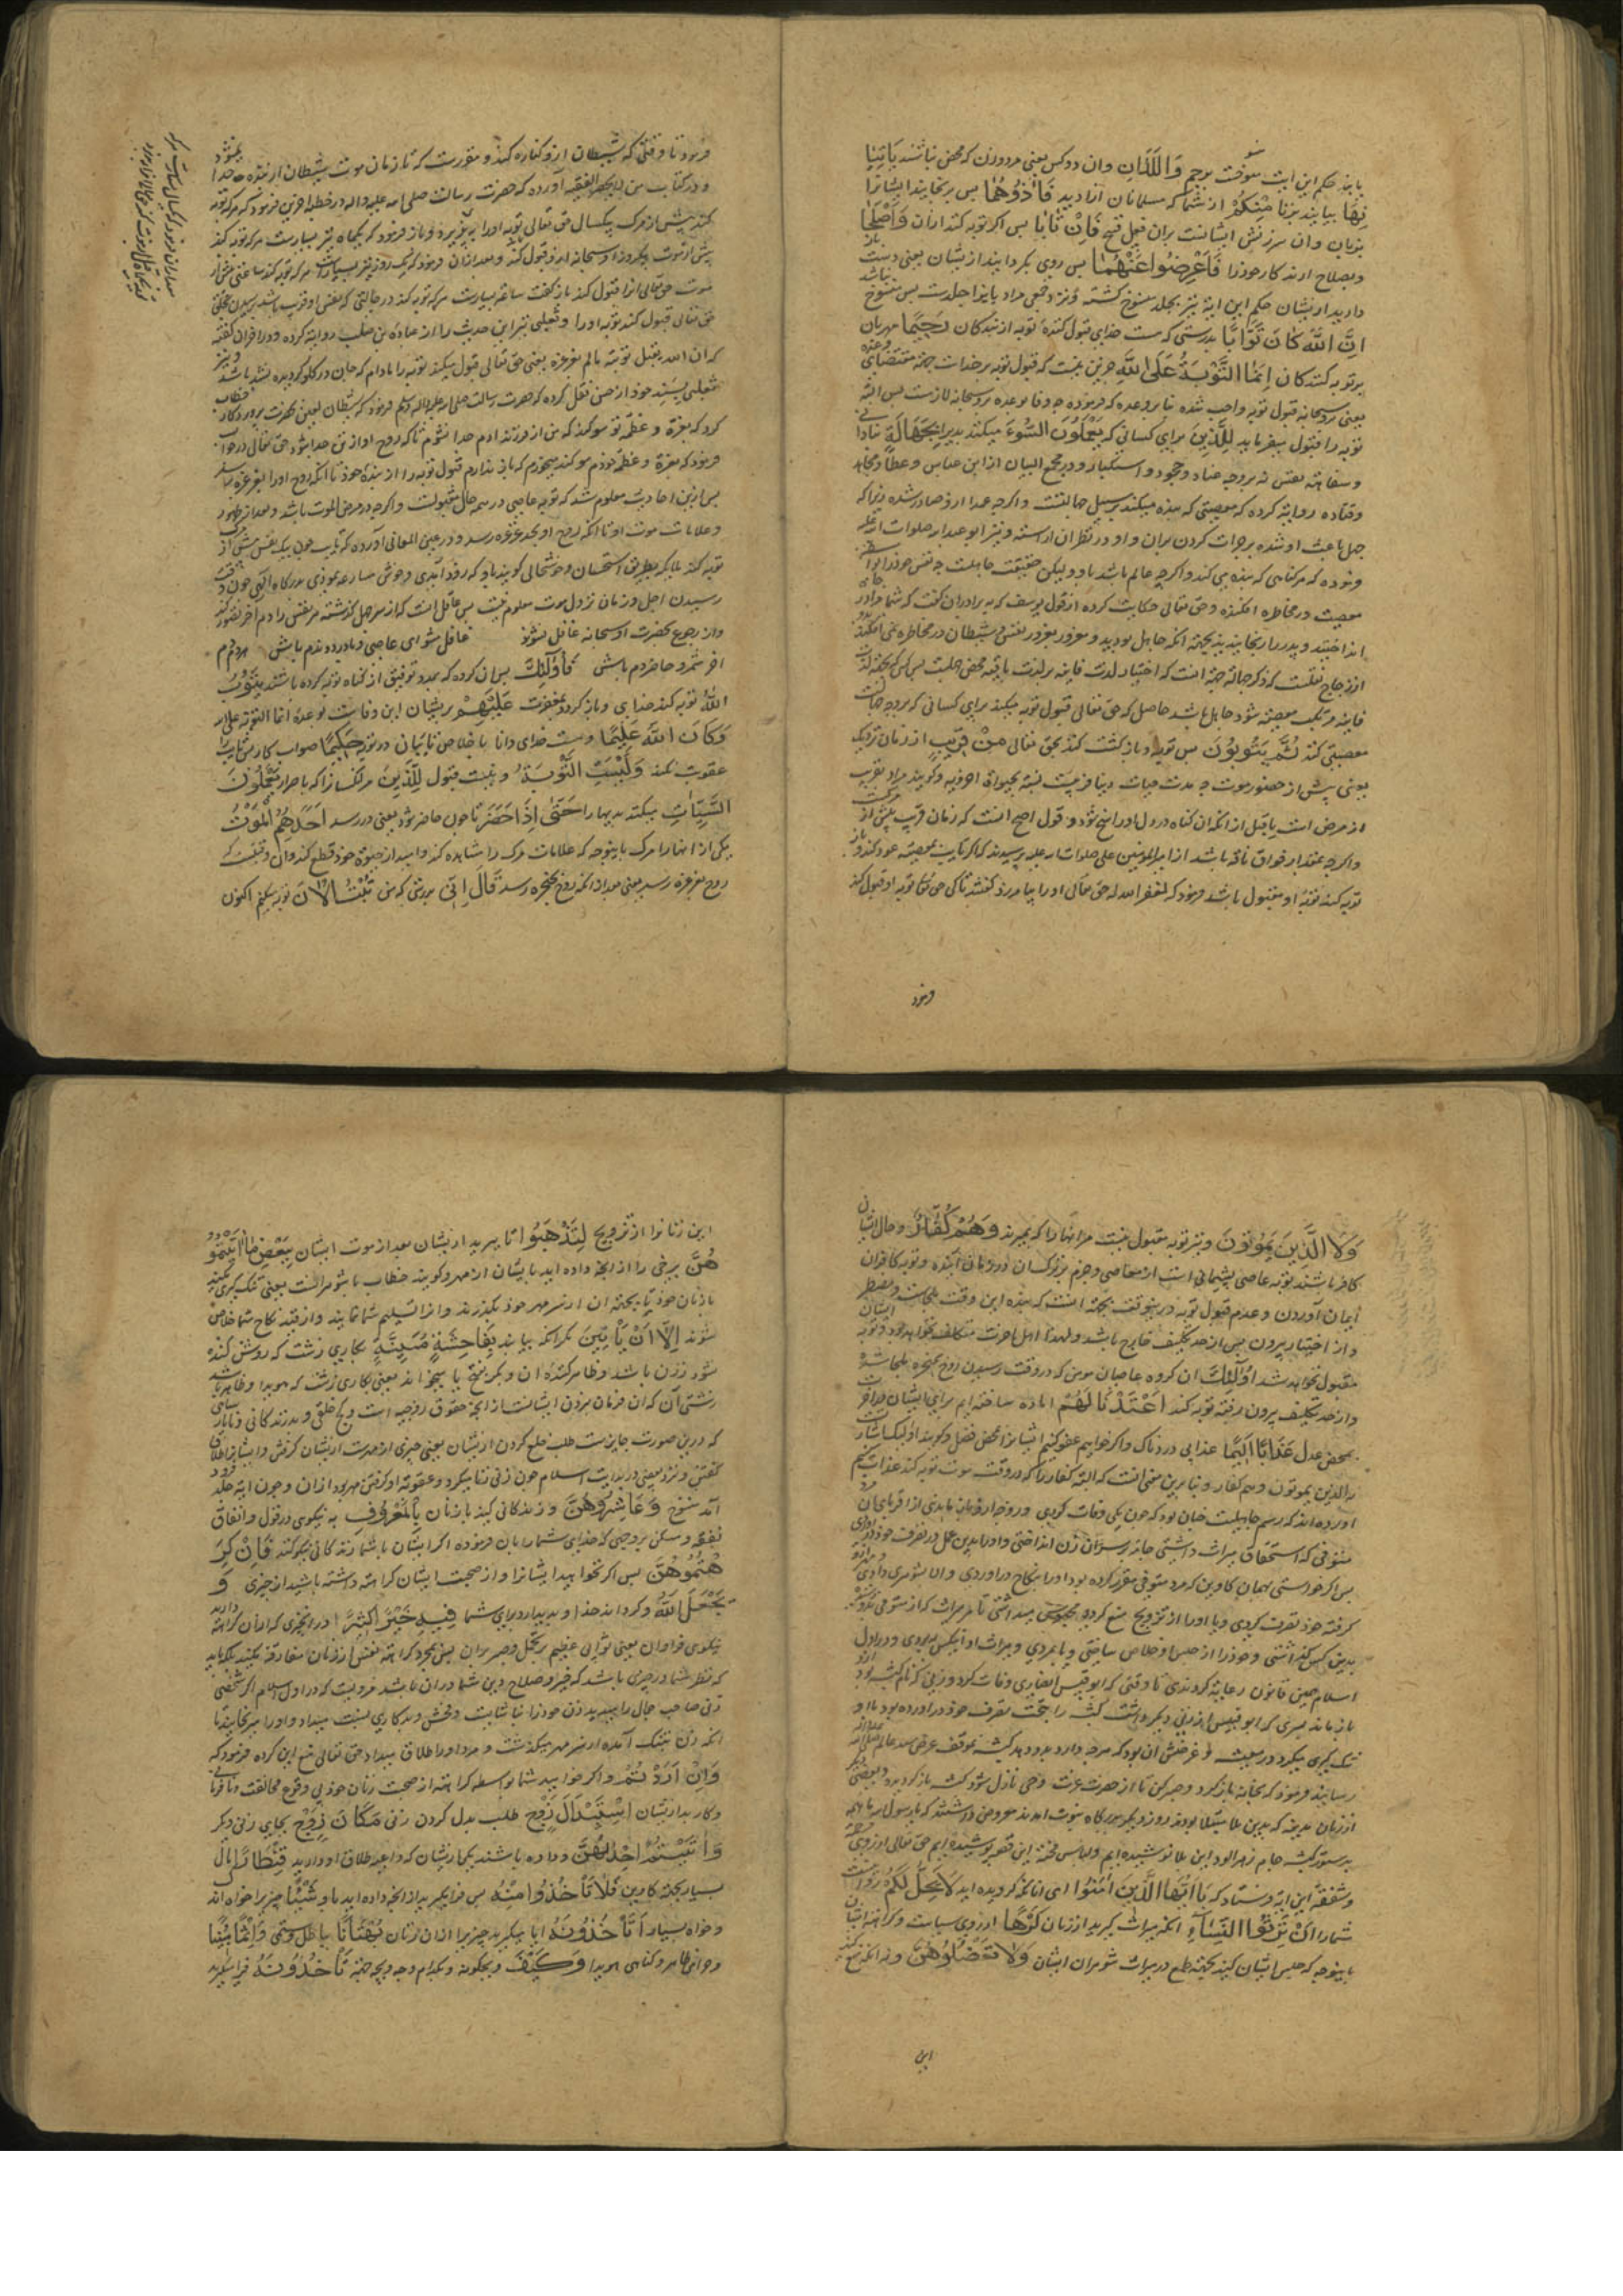 یابند حکم این ایت موقت برجم وَاللَّذَانِ وان دو کس یعنی مرد و زن که محصن نباشند یَأْتِیٰنِهَا
بیایند بزنا مِنْکُمْ از شما که مسلمانان ازادید فَاٰذُوهُمٰا پس برنجانید ایشانرا
بزبان وان سرزنش ایشانست بران فعل قبیح فَاِنْ تٰابٰا پس اکر توبه کنند ازان وَاَصْلَحٰا
وبصلاح ارند کار خودرا فَاَعْرِضُوا عَنْهُمٰا پس روی بکردانید از یشان یعنی دست باز
دارید از یشان حکم این ایة نیز بجلد منسوخ کشته ونزد جمعی مراد بایذا جلدست پس منسوخ نباشد
اِنَّ اللّٰهَ کٰانَ تَوّٰابًا بدرستی که هست خدای قبول کنندهٔ توبه از بندکان رَحِیمًا مهربان
بر توبه کنندکان اِنَّمَا التَّوْبَةُ عَلَی اللّٰهِ جزین نیست که قبول توبه بر خداست بجهة مقتضای وعده
یعنی بر وسبحانه قبول توبه واجب شده بنا بر وعده که فرموده چه وفا بوعده بر وسبحانه لازمست پس البته
توبه را قبول میفرماید لِلَّذِینَ برای کسانی که یَعْمَلُونَ السُّوءَ میکنند بدی را بِجَهٰالَةٍ بنادانی
وسفاهت نفس نه بر وجه عناد و جحود و استکبار و در مجمع البیان از ابن عباس و عطا و مجاهد
و قتاده روایة کرده که معصیتی که بنده میکند بر سبیل جهالتست واکرچه عمدا ازو صادر شده زیرا که
جهل باعث او شده بر جرات کردن بران و او در نظر ان اراسته و نیز ابو عبد الله صلوات الله علیه
فرموده که هر کناهی که بنده می کند واکرچه عالم باشد باو ولیکن حقیقت جاهلست چه نفس خودرا بواسطه
معصیت در مخاطره افکنده وحق تعالی حکایت کرده از قول یوسف که به برادران کفت که شما برادر
انداختید و پدر را رنجانیدید بجهة انکه جاهل بودید و مغرور بغرور نفس و شیطان در مخاطره می افکنید
از زجاج نقلست که ذکر جهالة بجهة انست که اختیار لذت فانیه بر لذت باقیه محض جهلست پس هر که بجهة لذت
فانیه مرتکب معصیة شود جاهل باشد حاصل که حق تعالی قبول توبه میکند برای کسانی که بر وجه جهالت
معصیتی کنند ثُمَّ یَتُوبُونَ پس توبه و بازکشت کنند بحق تعالی مِنْ قَرِیبٍ از زمان نزدیک
یعنی پیش از حضور موت چه مدت حیات دنیا قریبست نسبة بحیواة اخروی و کویند مراد بقریب
از مرض است یا قبل از انکه ان کناه در دل او راسخ شود و قول اصح انست که زمان قریب پیش از مرکست
واکرچه بمقدار فواق ناقه باشد از امیرالمؤمنین علی صلوات الله علیه پرسیدند که اکر تایب بمعصیة عود کند و باز
توبه کند توبهٔ او مقبول باشد فرمود که لیغفر الله له حق تعالی اورا بیامرزد کفتند تا کی حق تعالی توبه او قبول کند
فرمود
فرمود تا وقتی که شیطان ازو کناره کند و مقررست که تا زمان موت شیطان از بنده جدا نمیشود
و در کتاب من لایحضر الفقیه آورده که حضرت رسالت صلی الله علیه واله در خطبهٔ اخرین فرمود که هر که توبه
کند پیش از مرک بیکسال حق تعالی توبهٔ اورا بپذیرد وباز فرمود که یکماه نیز بسیارست هر که توبه کند
پیش از موت بیکروز او سبحانه ازو قبول کند وبعد ازان فرمود که یک روز نیز بسیارست هر که توبه کند ساعتی پیش از
موت حق تعالی انرا قبول کند باز کفت ساعة بسیارست هر که توبه کند در حالتی که نفس او قریب باشد برسیدن بحلق
حق تعالی قبول کند توبه اورا و ثعلبی نیز این حدیث را از عبادة بن صامت روایة کرده و در اخر ان کفته
که ان الله یقبل توبته مالم یغرغر یعنی حق تعالی قبول میکند توبه را مادام که جان در کلو نکردیده باشد و نیز
ثعلبی بسند خود از حسن نقل کرده که حضرت رسالت صلی الله علیه واله وسلم فرمود که شیطان لعین بحضرت پروردکار خطاب
کرد که بعزة و عظمة تو سوکند که من از فرزند ادم جدا نشوم تا که روح او از تن جدا شود حق تعالی در جواب
فرمود که بعزة و عظمة خودم سوکند میخورم که باز ندارم قبول توبه را از بنده خود تا انکه روح اورا بغرغره رسد
پس ازین احادیث معلوم شد که توبه عاصی در همه حال مقبولست واکرچه در مرض الموت باشد وبعد از ظهور
وعلامات موت او تا انکه روح او بحد غرغره رسد و در عین المعانی آورده که تایب چون بیک نفس پیش از مرک
توبه کند ملایکه بطریق استحسان و خوشحالی کویند باو که زود آمدی وخوش مسارعه نمودی بدرکاه الهی چون وقت
رسیدن اجل وزمان نزول موت معلوم نیست پس عاقل انست که از سر جهل کذشته هر نفس را دم اخر تصور کند
واز رجوع بحضرت او سبحانه غافل نشود غافل مشو ای عاصی و مادرده ندم باش هر دم دم
اخر شمر و حاضر دم باش فَاُولٰئِکَ پس ان کرده که بمدد توفیق از کناه توبه کرده باشند یَتُوبُ
اللّٰهُ توبه کند خدای وباز کردد بمغفرت عَلَیْهِمْ بریشان این وفاست بوعدهٔ انما التوبة علی الله
وَکٰانَ اللّٰهُ عَلِیمًا وهست خدای دانا باخلاص تایبان در توبه حَکِیمًا صواب کار هر تایب را
عقوبت نکند وَلَیْسَتِ التَّوْبَةُ ونیست قبول لِلَّذِینَ مر انکسانرا که باصرار یَعْمَلُونَ
السَّیِّئٰاتِ میکنند بدیها را حَتّٰی اِذٰا حَضَرَ تا چون حاضر شود یعنی در رسد اَحَدَهُمُ الْمَوْتُ
یکی از انها را مرک باینوجه که علامات مرک را مشاهده کند وامید از حیوة خود قطع کند وان وقتیست که
روح بغرغره رسد یعنی بعد از انکه روح بحنجره رسد قٰالَ اِنّی بدرستی که من تُبْتُ الْاٰنَ توبه میکنم اکنون
وَلَا الَّذِینَ یَمُوتُونَ ونیز توبه مقبول نیست مر انها را که بمیرند وَهُمْ کُفّٰارٌ وحال انکه ایشان
کافر باشند توبهٔ عاصی پشیمانی است از معاصی وجزم بر ترک ان در زمان اینده وتوبه کافران
ایمان آوردن وعدم قبول توبه درینوقت بجهة انست که بنده این وقت ملجاست ومضطر
واز اختیار بیرون پس از حد تکلیف خارج باشد ولهذا اهل اخرت مکلف نخواهند بود وتوبه ایشان
مقبول نخواهد شد اُولٰئِکَ ان کروه عاصیان مومن که در وقت رسیدن روح بحنجره ملجا شده
واز حد تکلیف بیرون رفته توبه کنند اَعْتَدْنٰا لَهُمْ اماده ساخته ایم برای ایشان در اخرت
بمحض عدل عَذٰابًا اَلِیمًا عذابی دردناک واکر خواهیم عفو کنیم ایشانرا بمحض فضل وکویند اولئک اشارتست
بالذین یموتون وهم کفار وبنا برین معنی انست که البته کفار را که در وقت موت توبه کنند عذاب کنیم
اورده اند که رسم جاهلیت چنان بود که چون یکی وفات کردی و زوجه ازو مانده بودی از اقربای ان مرد
متوفی که استحقاق میراث داشتی جامه بر سر ان زن انداختی واورا بدین عمل در تصرف خود دراوردی
پس اکر خواستی بهمان کاوین که مرد متوفی مقرر کرده بود اورا بنکاح دراوردی والا بشوهری دادی و مهر ازو
کرفته خود تصرف کردی ویا اورا از تزویج منع کرده محبوس میداشتی تا هر میراث که از متوفی کرفته بودی
بدین کس کذاشتی وخودرا از حبس او خلاص ساختی ویا بمردی ومیراث او انکس ببردی و در اول
اسلام همین قانون رعایة کردندی تا وقتی که ابو قیس انصاری وفات کرد و زنی که نام کبیشه بود ازو
بازماند پسری که ابو قیس از زنی دیکر داشت کبیشه را بتحت تصرف خود دراورده بود با او
تنک کیری میکرد در معیشه وغرضش ان بود که هرچه دارد بدو دهد کبیشه بموقف عرض سید عالم صلی الله علیه واله
رسانید فرمود که بخانه باز کرد وصبر کن تا از حضرت عزت وحی نازل شود کبیشه باز کردید وبعضی دیکر
از زنان مدینه که بدین بلا مبتلا بودند روز دیکر بدرکاه نبوت امدند معروض داشتند که یا رسول الله ما همه
بدستور کبیشه جام زهرالود این بلا نوشیده ایم ولباس محنت این قصه پوشیده ایم حق تعالی از روی مرحمت
وشفقت این ایة فرستاد که یٰا اَیُّهَا الَّذِینَ اٰمَنُوا ای انانکه کرویده اید لٰا یَحِلُّ لَکُمْ روا نیست
شمارا اَنْ تَرِثُوا النِّسٰاءَ انکه میراث کیرید از زنان کَرْهًا از روی سیاست وکراهت ایشان
باینوجه که حبس ایشان کنید بجهة طمع در میراث شوهران ایشان وَلٰا تَعْضُلُوهُنَّ ونه انکه منع کنید
این
این زنانرا از تزویج لِتَذْهَبُوا تا ببرید از یشان بعد از موت ایشان بِبَعْضِ مٰا اٰتَیْتُمُو
هُنَّ برخی را از انچه داده اید بایشان از مهر وکویند خطاب با شوهرانست یعنی تنک کیری مکنید
بازنان خود تا بجهة ان از سر مهر خود بکذرند وانرا تسلیم شما نمایند واز قید نکاح شما خلاص
شوند اِلّٰا اَنْ یَأْتِینَ مکر انکه بیایند بِفٰاحِشَةٍ مُبَیِّنَةٍ بکاری زشت که روشن کنده
شود زدن باشد وظاهر کننده ان وبکر بفتح یا میخواند یعنی بکاری زشت که هویدا وظاهر باشد
زشتی آن که ان فرمان نبردن ایشانست از انچه حقوق زوجیه است وکج خلقی وبد زندکانی وناپارسایی
که درین صورت جایزست طلب خلع کردن از یشان یعنی چیزی از مهرت از یشان کرفتن وایشانرا طلاق
کفتن ونزد بعضی در بدایت اسلام چون زنی زنا میکرد وعقوبة او کرفتن مهر بود ازان وچون ایة جلد فرود
آمد منسوخ وَعٰاشِرُوهُنَّ وزندکانی کنید بازنان بِالْمَعْرُوفِ به نیکویی در قول وانفاق
نفقه ومسکن بر وجهی که خدای شما را بان فرموده اکر ایشان باشما زندکانی نیکو کنند فَاِنْ کَرِ
هْتُمُوهُنَّ پس اکر نخواهید ایشانرا واز صحبت ایشان کراهت داشته باشید از چیزی وَ
یَجْعَلَ اللّٰهُ وکرداند خدا وپدید ارد برای شما فِیهِ خَیْرًا کَثِیرًا در انچیزی که ازان کراهت دارید
نیکویی فراوان یعنی ثوابی عظیم بر تحمل وصبر بران پس بمجرد کراهت نفس از زنان مفارقت مکنید بلکه باید
که نظر شما در چیزی باشد که خیر وصلاح دین شما دران باشد مرویست که در اول اسلام اکر شخصی
زنی صاحب جمال را بدیدی زن خودرا بناشایست وفحش وبدکاری نسبت میداد واورا میرنجانید تا
انکه زن بتنک آمده از سر مهر میکذشت ومرد اورا طلاق میداد حق تعالی منع این کرده فرمود که
وَاِنْ اَرَدْتُمُ واکر خواهید شما بواسطه کراهت از صحبت زنان خودبی وقوع مخالفت ونافرمانی
وکاربد از یشان اسْتِبْدٰالَ زَوْجٍ طلب بدل کردن زنی مَکٰانَ زَوْجٍ بجای زنی دیکر
وَاٰتَیْتُمْ اِحْدٰیهُنَّ وداده باشید یکی از یشان که داعیه طلاق او دارید قِنْطٰارًا مال
بسیار بجهة کاوین فَلٰا تَأْخُذُوا مِنْهُ پس فرا مکیرید از انچه داده اید باو شَیْئًا چیزیرا خواه اندک
وخواه بسیار اَتَأْخُذُونَهُ ایا میکیرید چیزیرا ازان زنان بُهْتٰانًا بباطل وستم وَاِثْمًا مُبِینًا
وجرانی ظاهر وکناهی هویدا وَکَیْفَ وچکونه وبکدام وجه وبچه حجة تَأْخُذُونَهُ فرا میکیرید